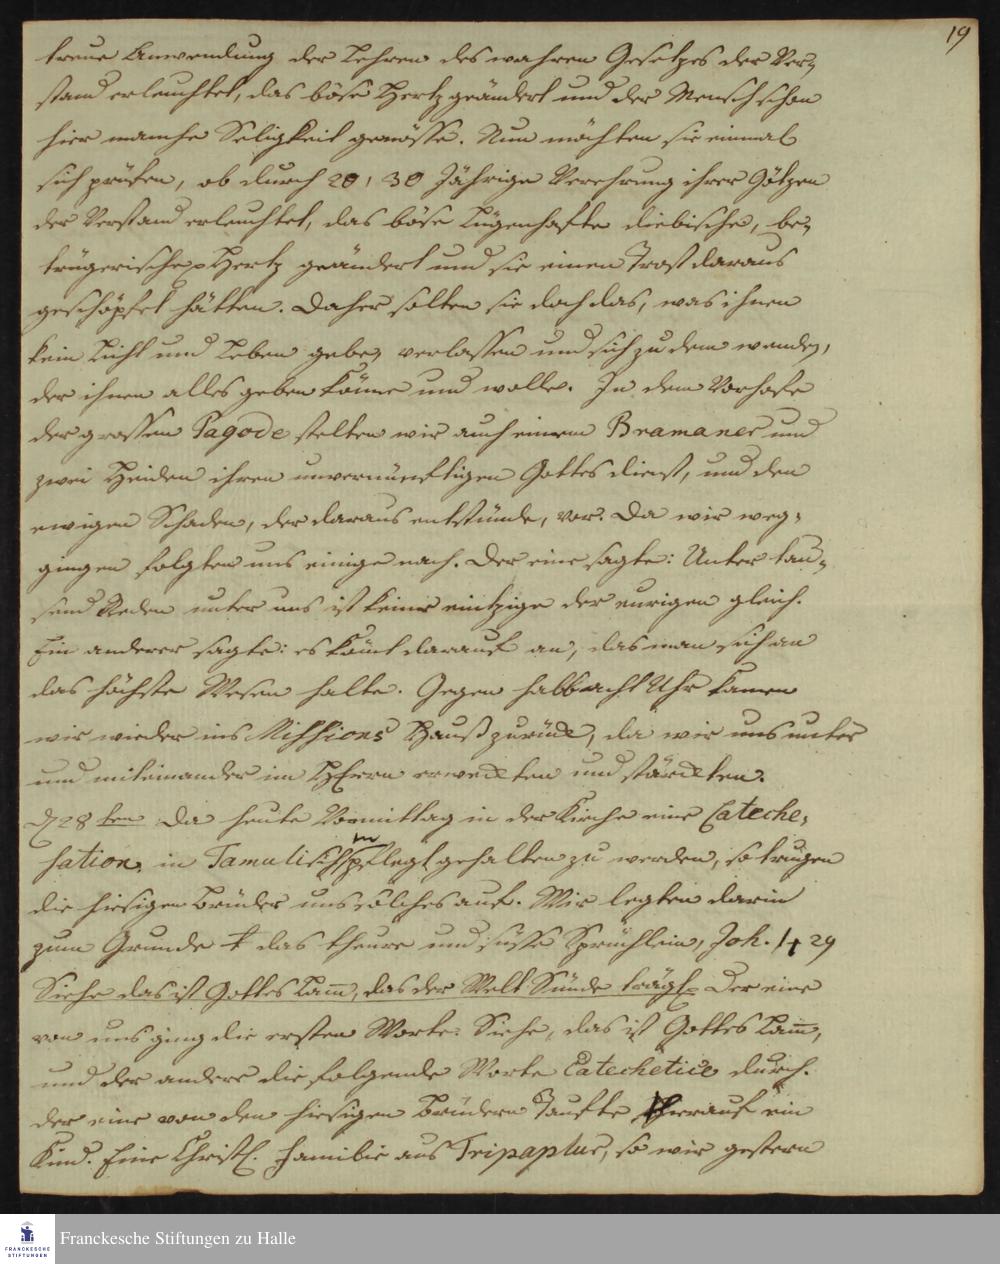 19
treue Anwendung der Lehren des wahren Gesetzes der Ver-
stand erleuchtet, das böse Hertz geändert und der Mensch schon
hier manche Seligkeit genösse. Nun möchten sie einmal
sich prüfen, ob durch 20, 30 Jährige Verehrung ihrer Götzen
der Verstand erleuchtet, das böse Lügenhafte diebische, be-
trügerische Hertz geändert und sie einen Trost daraus
geschöpfet hätten. Daher solten sie doch das, was ihnen
kein Licht und Leben gebe, verlassen und sich zu dem wenden,
der ihnen alles geben könne und wolle. In dem Vorhofe
der grossen Pagode stelten wir auch einem Bramaner und
zwei Heiden ihren unvernünftigen Gottesdienst, und den
ewigen Schaden, der daraus entstünde, vor. Da wir weg-
gingen folgten uns einige nach. Der eine sagte: Unter tau-
send Reden unter uns ist keine eintzige der eurigen gleich.
Ein anderer sagte: es kömt darauf an, das man sich an
das höchste Wesen halte. Gegen halb acht Uhr kamen
wir wieder ins Missions Hauß zurück, da wir uns unter
und miteinander im HErrn erweckten und stärckten.
d 28 ten Da heute Vormittag in der Kirche eine Cateche-
sation in Tamulisch pflegt gehalten zu werden, so trugen
die hiesigen Brüder uns solches auf. Wir legten darin
zum Grunde das theure und süsse Sprüchlein, Joh. 1 29
Siehe das ist Gottes Lam̄, das der Welt Sünde trägt. Der eine
von uns ging die ersten Worte: Siehe, das ist Gottes Lam̄,
und der andere die folgende Worte Catechetice durch.
der eine von den hiesigen Brüdern Taufte hierauf ein
Kind. Eine Christl. Familie aus Tripaplur, so wir gestern
FRANCKESCHE STIFTUNGEN
Franckesche Stiftungen zu Halle